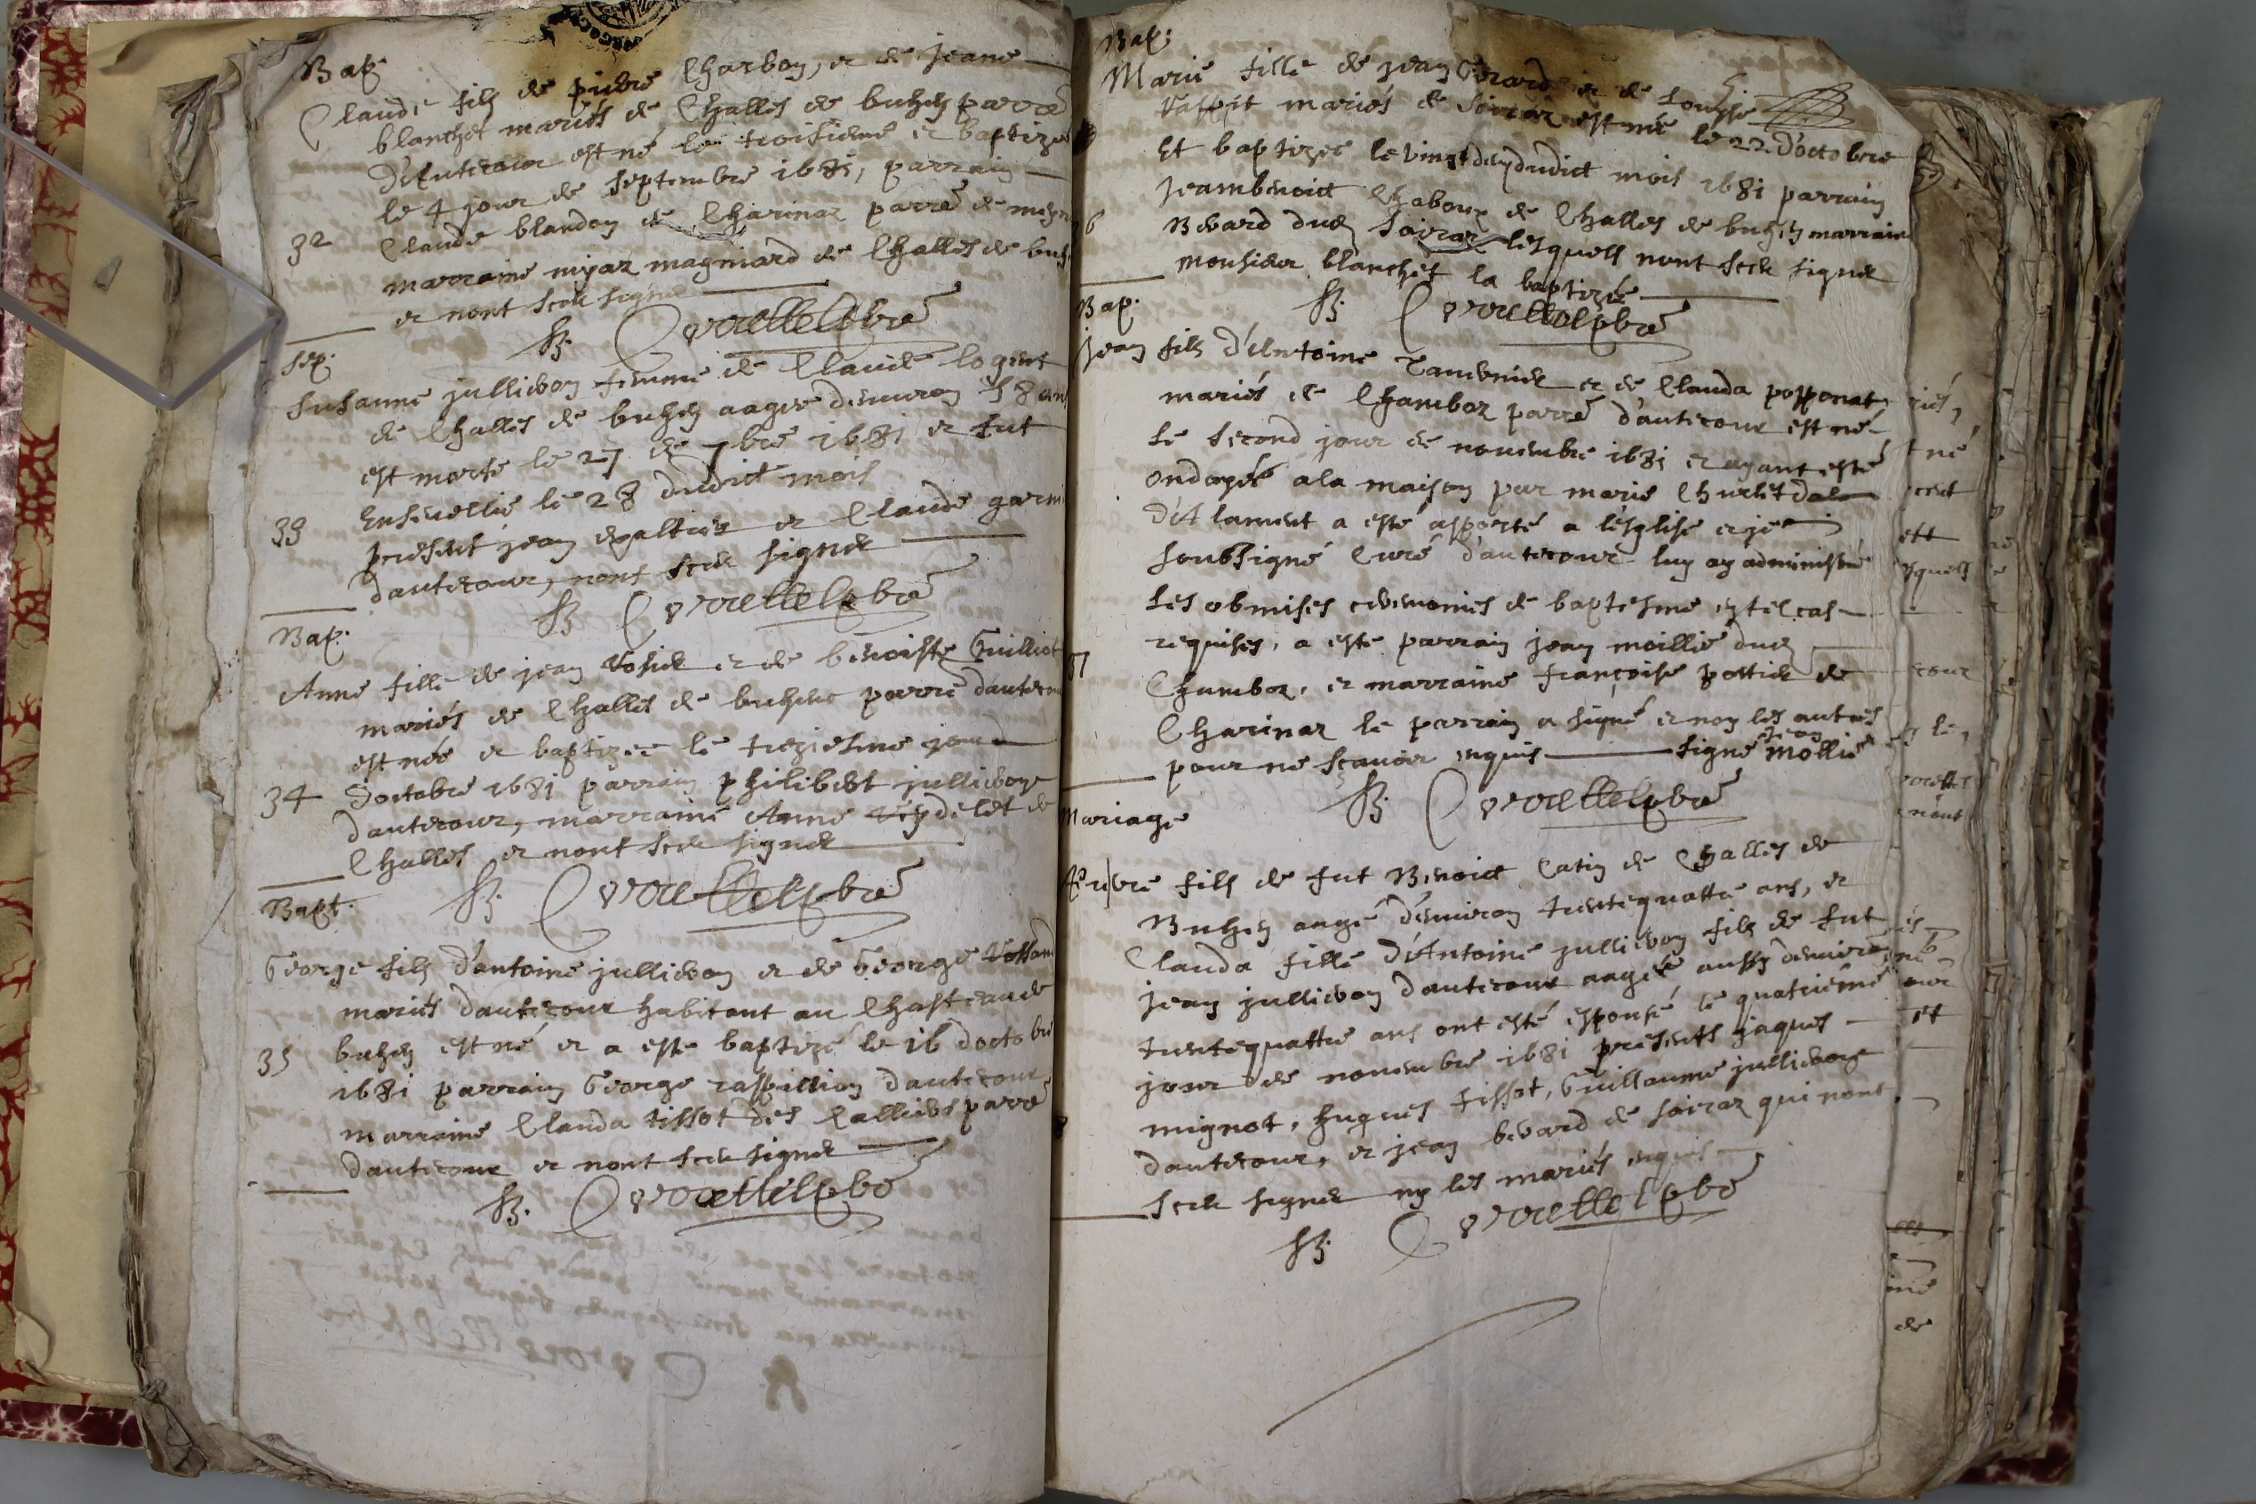 Bap.
Claude fils de pierre Charbon, et de jeane
blanchet mariés de Challes de buhen parre
D'Autecour est né le troisieme et baptizé
le 4 jour de septembre 1681, parrain
Claude blandon de Charinaz parre de
32
marraine myaz magniard de Challes de
et nont sceu signer
Cvraellel pbre
Sep.
Susanne jullieron femme de Claude
de Challes de buhen aagee denviron 58 ans
est morte le 27 de 7bre 1681 et fut
Ensevellie le 28 dudict mois
33
present jean galtier et Claude
dautecour, nont sceu signer
Cvraellel pbre
Bap.
Anne fille de jean Rosier et de benoiste Guilliot
mariés de Challes de buhenc parre dautecour
est née et baptizee le treziesme jour
34
Doctobre 1681 parrain philibert jullieron
dautecour, marraine Anne de
Challes et nont sceu signer
Cvraellel pbre
Bapt.
George fils d'antoine jullieron et de George
mariés dautecour habitant au Chasteau de
35
buhen est né et a esté baptizé le 16 doctobre
1681 parrain George raspillion dautecour
marraine Clauda tissot des Calliers parre
dautecour et nont sceu signer
Cvraellel pbre
Bap:
Marie fille de jean Gerard et de Louyse
mariés de Soiriaz est née le 22 D'octobre
Et baptizee le vingt deux dudict mois 1681 parrain
jeambenoict Chaboux de Challes de buhen marraine
6
Berard dud Soiriaz lesquels nont sceu signer
monsieur blanchet la baptizée
Cvraellel pbre
Bap.
jean fils d'Antoine Tavernier et de Clauda popponat
mariés de Chamboz parre d'autecour est né
le second jour de novembre 1681 et ayant esté
ondoyé a la maison par marie
a esté apporté a lesglise et je
soubsigné Curé d'autecour luy ay administré
les obmises ceremonies de baptesme en tel cas
requises, a esté parrain jean moillie dud
37
Chamboz, et marraine françoise pottier de
Charinaz le parrain a signé et non les autres
pour ne sçavoir enquis signé jean mollie
Cvraellel pbre
Mariage
Pierre fils de fut Benoict Catin de Challes de
Buhen aagé d'environ trentequattre ans, et
Clauda fille d'Antoine jullieron fils de fut
jean jullieron Dautecour aagée aussy denviron
trentequattre ans ont esté espousé le quatrieme
jour de novembre 1681 presents jaques
mignot, hugues tissot, Guillaume jullieron
dautecour, et jean berard de soiriaz qui nont
sceu signer ny les mariés enquis
Cvraellel pbre